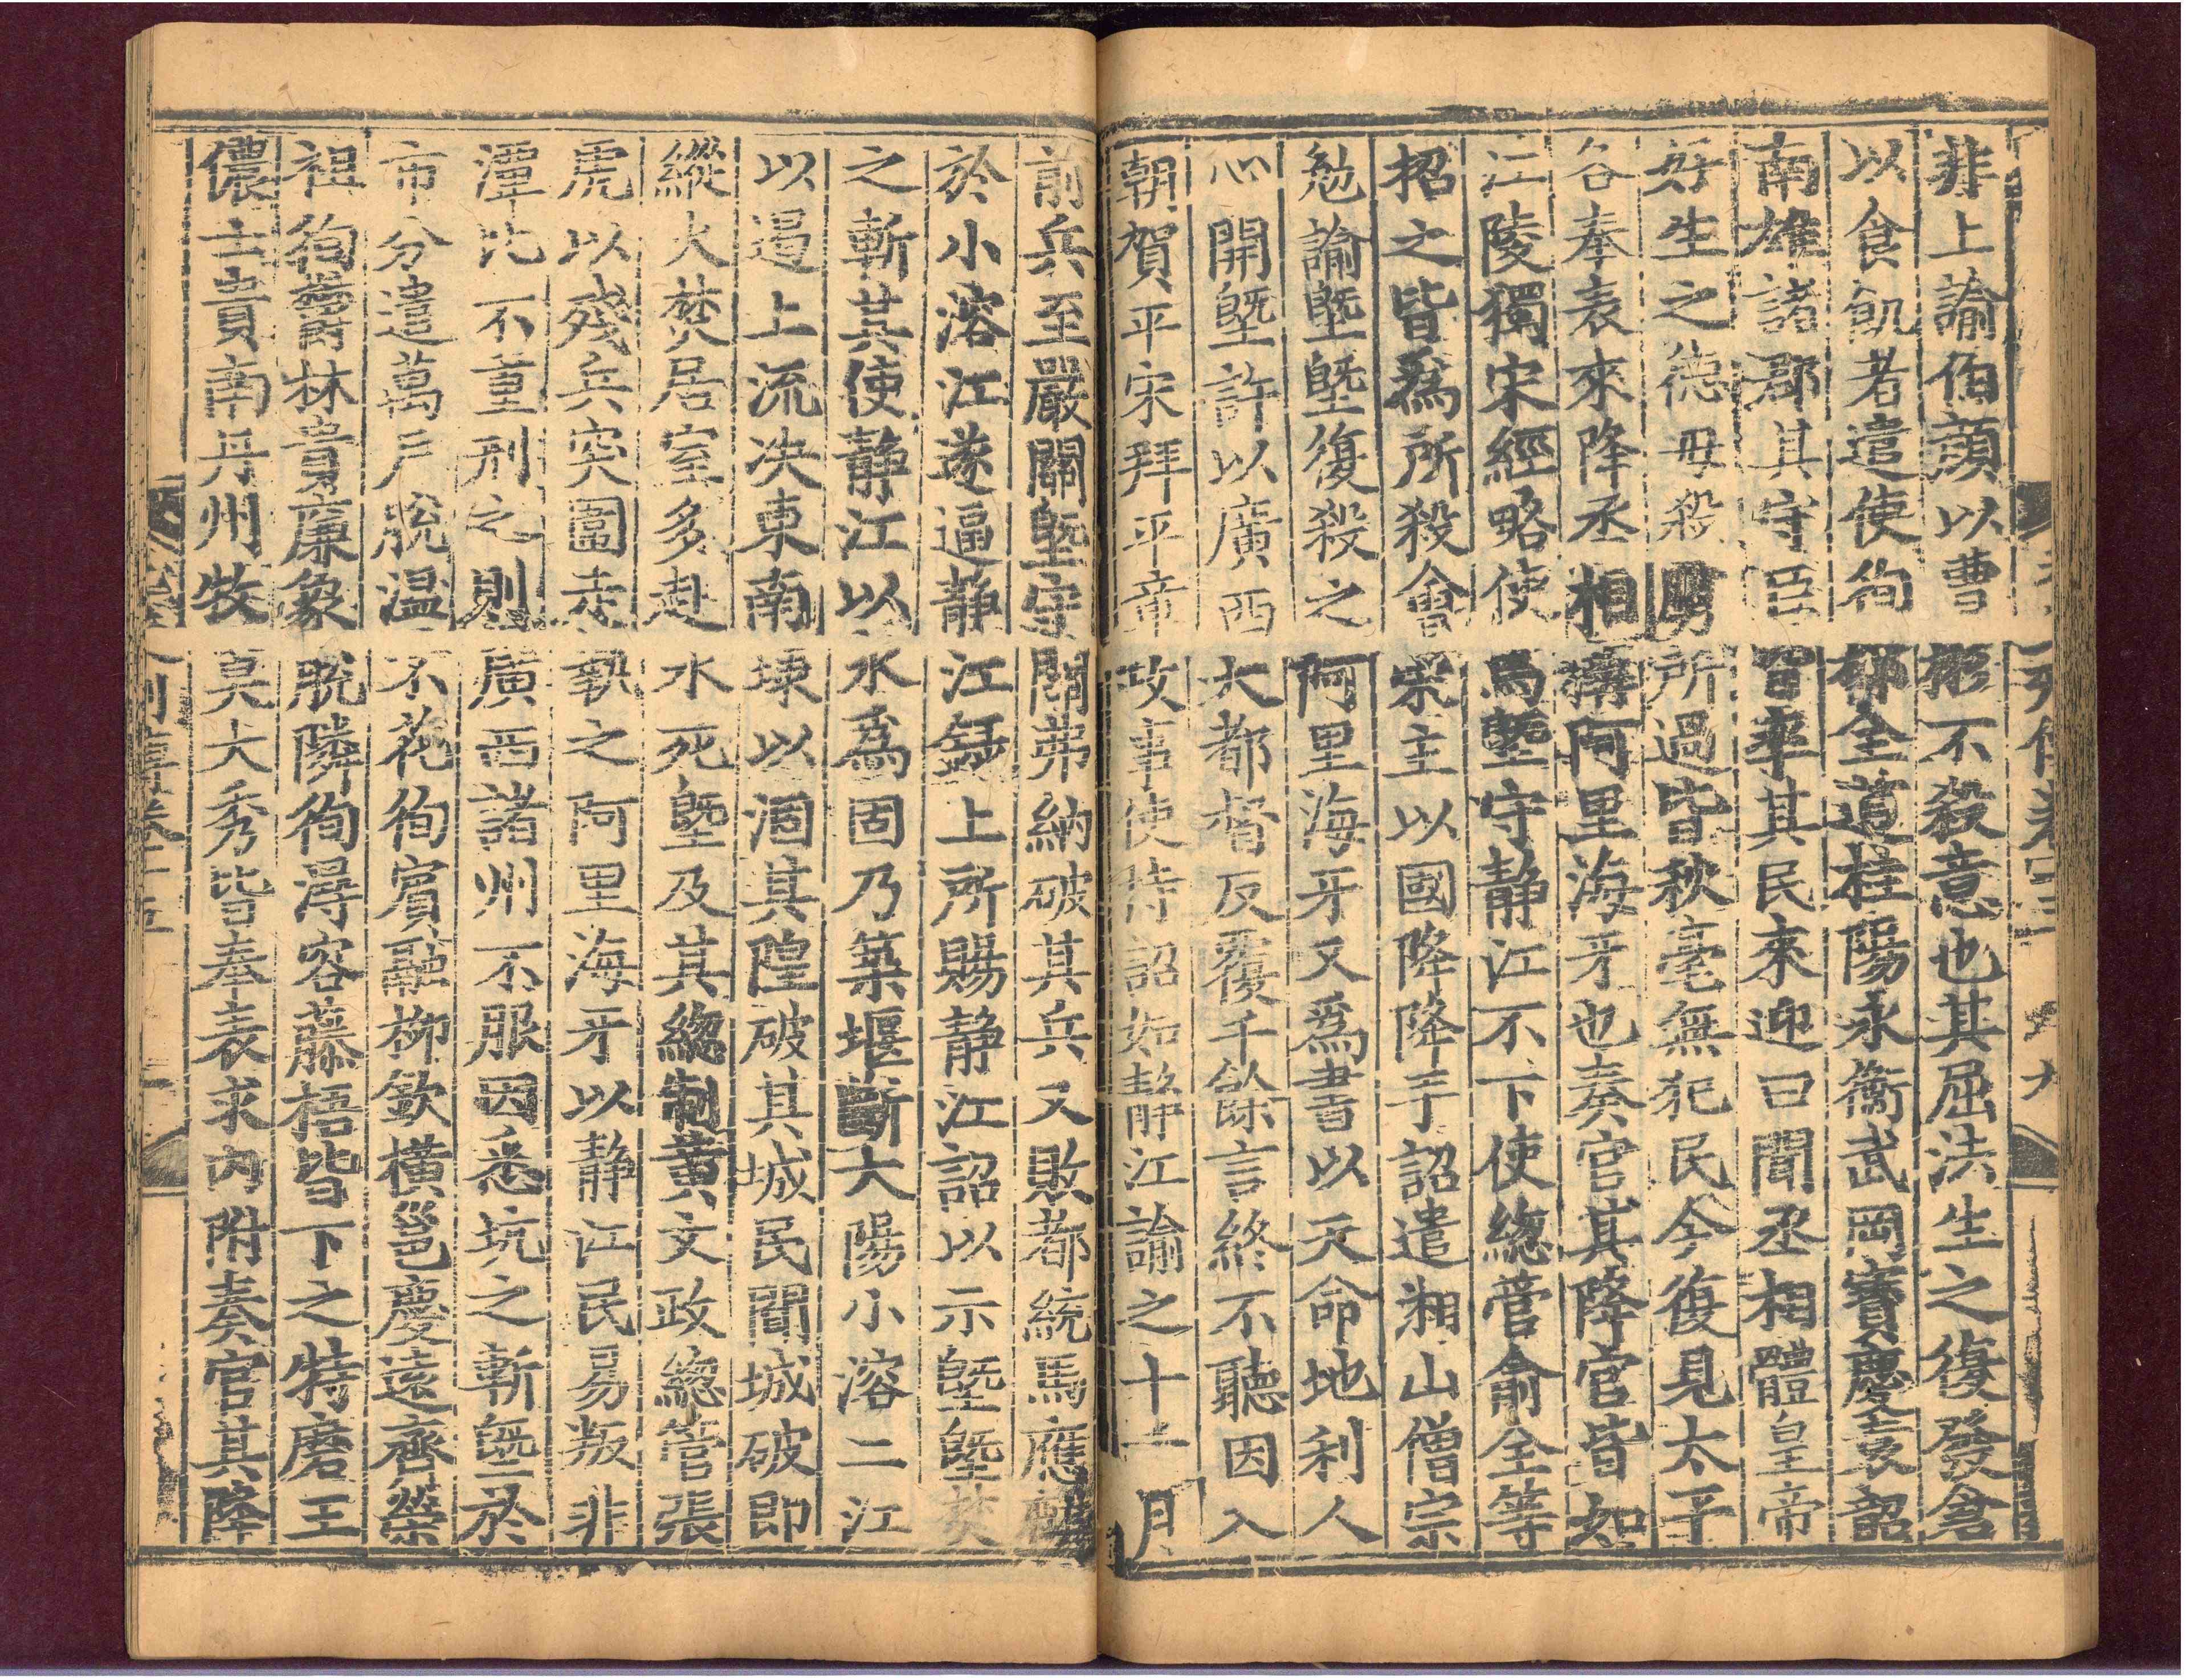 非上諭伯顔以曹彬不殺意也其屈法生之復發倉
以食飢者遣使徇郴全道桂陽永衡武岡寶慶袁韶
南雄諸郡其守臣皆率其民來迎曰聞丞相體皇帝
好生之德毋殺虜所過皆秋毫無犯民今復見太平
各奉表來降丞相搆阿里海牙也奏官其降官皆如
江陵獨宋經略使馬墍守静江不下使總管俞全等
招之皆爲所殺會宋主以國降降手詔遣湘山僧宗
勉諭墍墍復殺之阿里海牙又爲書以天命地利人
心開墍許以廣西大都督反覆千餘言終不聽因入
朝賀平宋拜平章政事使持詔如静江諭之十一月
前兵至嚴關墍守關弗納破其兵又敗都統馬應麒
於小溶江遂逼静江録上所賜静江詔以示墍墍焚
之斬其使静江以水爲固乃築堰斷大陽小溶二江
以遏上流决東南埭以涸其隍破其城民聞城破即
縱火焚居室多赴水死墍及其總制黄文政總管張
虎以殘兵突圍走執之阿里海牙以静江民易叛非
潭比不重刑之則廣西諸州不服因悉坑之斬墍於
市分遣萬戶脫温不花徇賓融柳欽横邕慶遠齊榮
祖徇鬱林貴廉象脫隣徇潯容藤梧皆下之特磨王
儂士貴南丹州牧莫大秀皆奉表求内附奏官其降